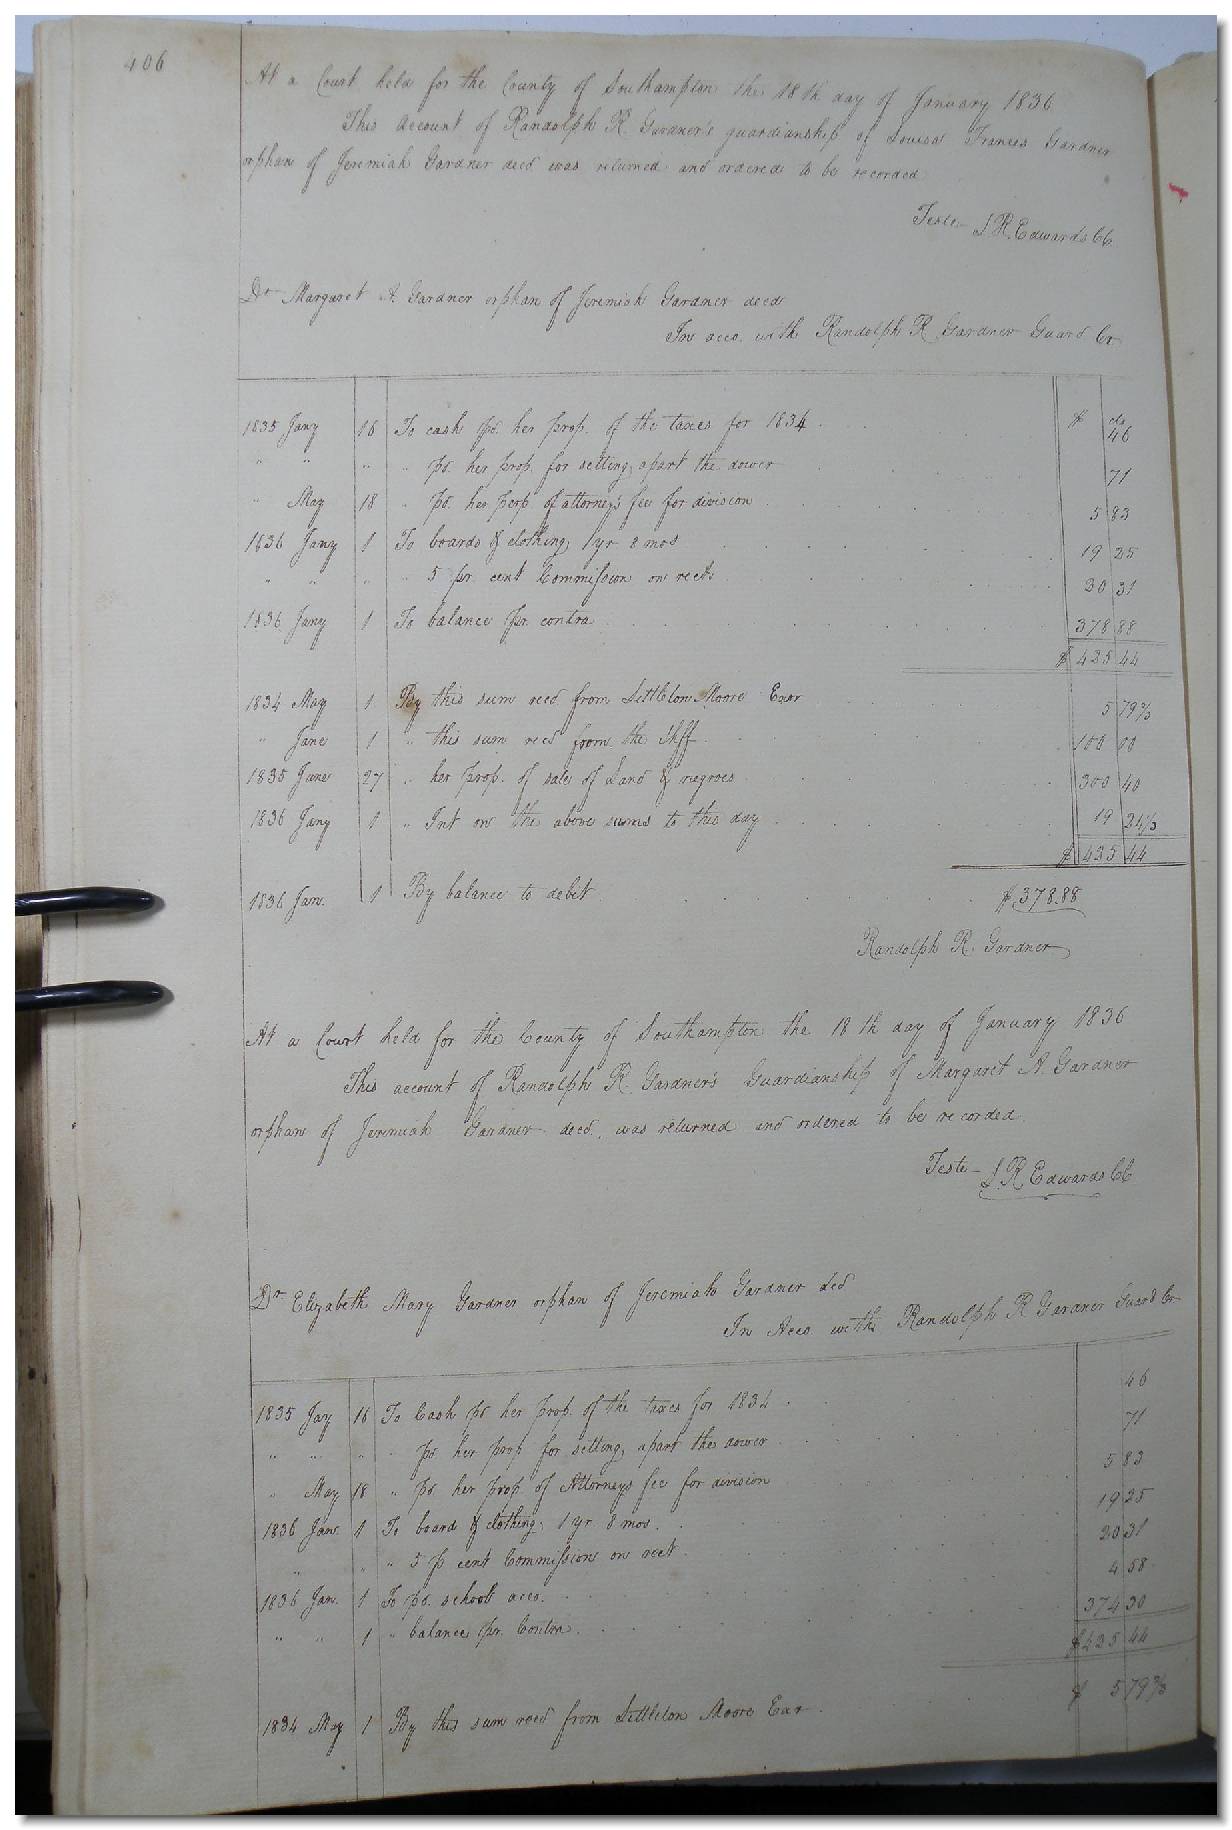 406
At a Court held for the County of Southampton the 18th day of January 1836
This account of Randolph R. Gardner's guardianship of Louisa Frances Gardner
orphan of Jeremiah Gardner decd was returned and ordered to be recorded
Teste- L R. Edwards CC.
Dr Margaret A. Gardner orphan of Jeremiah Gardner decd
In acco. with Randolph R Gardner Guard Cr
$ cts
1835 Jany 16 To cash pd. her prop. of the taxes for 1834 46
" " " " pd. her prop. for setting apart the dower 71
" May 18 " pd. her prop of attorney's fee for division 5 83
1836 Jany 1 To board & clothing, 1 yr 8 mos 19 25
" " " " 5 pr. cent Commission on rects 20 31
1836 Jany 1 To balance pr. contra 378 88
$ 425 44
1834 May 1 By this sum recd from Littleton Moore Exor 5 79 2/3
" June 1 " this sum recd from the Shff 100 00
1835 June 27 " her prop. of sale of Land & negroes 300 40
1836 Jany 1 " Int on the above sums to this day 19 24 1/3
$ 425 44
1836 Jan. 1 By balance to debit $ 378.88
Randolph R. Gardner
At a Court held for the County of Southampton the 18th day of January 1836
This account of Randolph R. Gardner's Guardianship of Margaret A. Gardner
orphan of Jeremiah Gardner decd. was returned and ordered to be recorded
Teste- L R Edwards CC
Dr Elizabeth Mary Gardner orphan of Jeremiah Gardner ded
In Acco with Randolph R Gardner Guard Cr
1835 Jay 16 To Cash pd her prop. of the taxes for 1834 46
" " " " pd her prop for setting apart the dower 71
" May 18 " pd her prop of Attorneys fee for division 5 83
1836 Jan. 1 To board & clothing, 1 yr 8 mos. 19 25
" " " 5 p cent Commission on rect. 20 31
1836 Jan. 1 To pd. school acco. 4 58
" " 1 " balance pr. Contra 374 30
$ 425 44
1834 May 1 By this sum recd from Littleton Moore Exr. $ 5 79 2/3